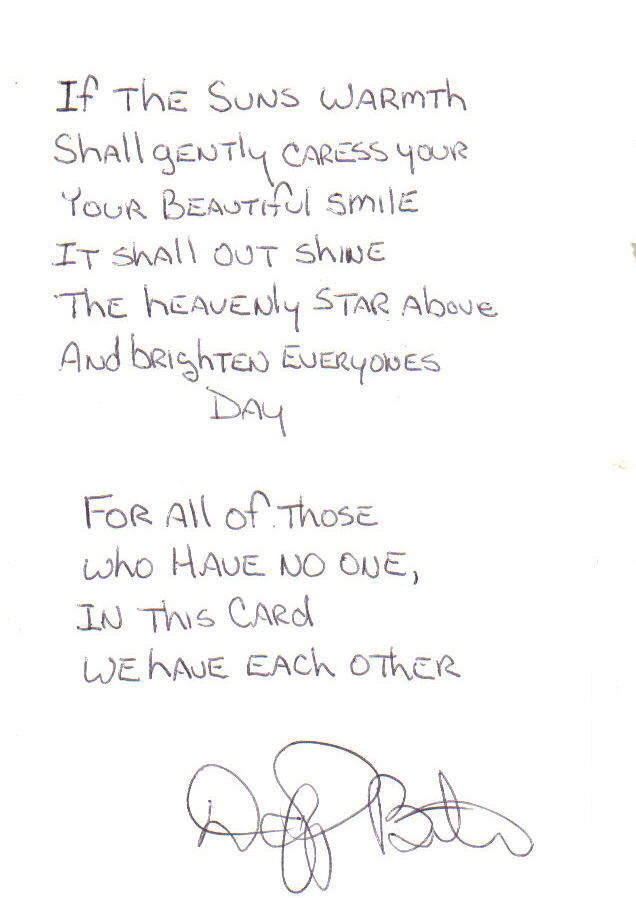 If The Suns Warmth
Shall gently caress your
Your Beautiful smile
It shall out shine
The heavenly Star Above
And brighten Everyones
Day
For All of Those
who Have No One,
In This Card
We have Each Other